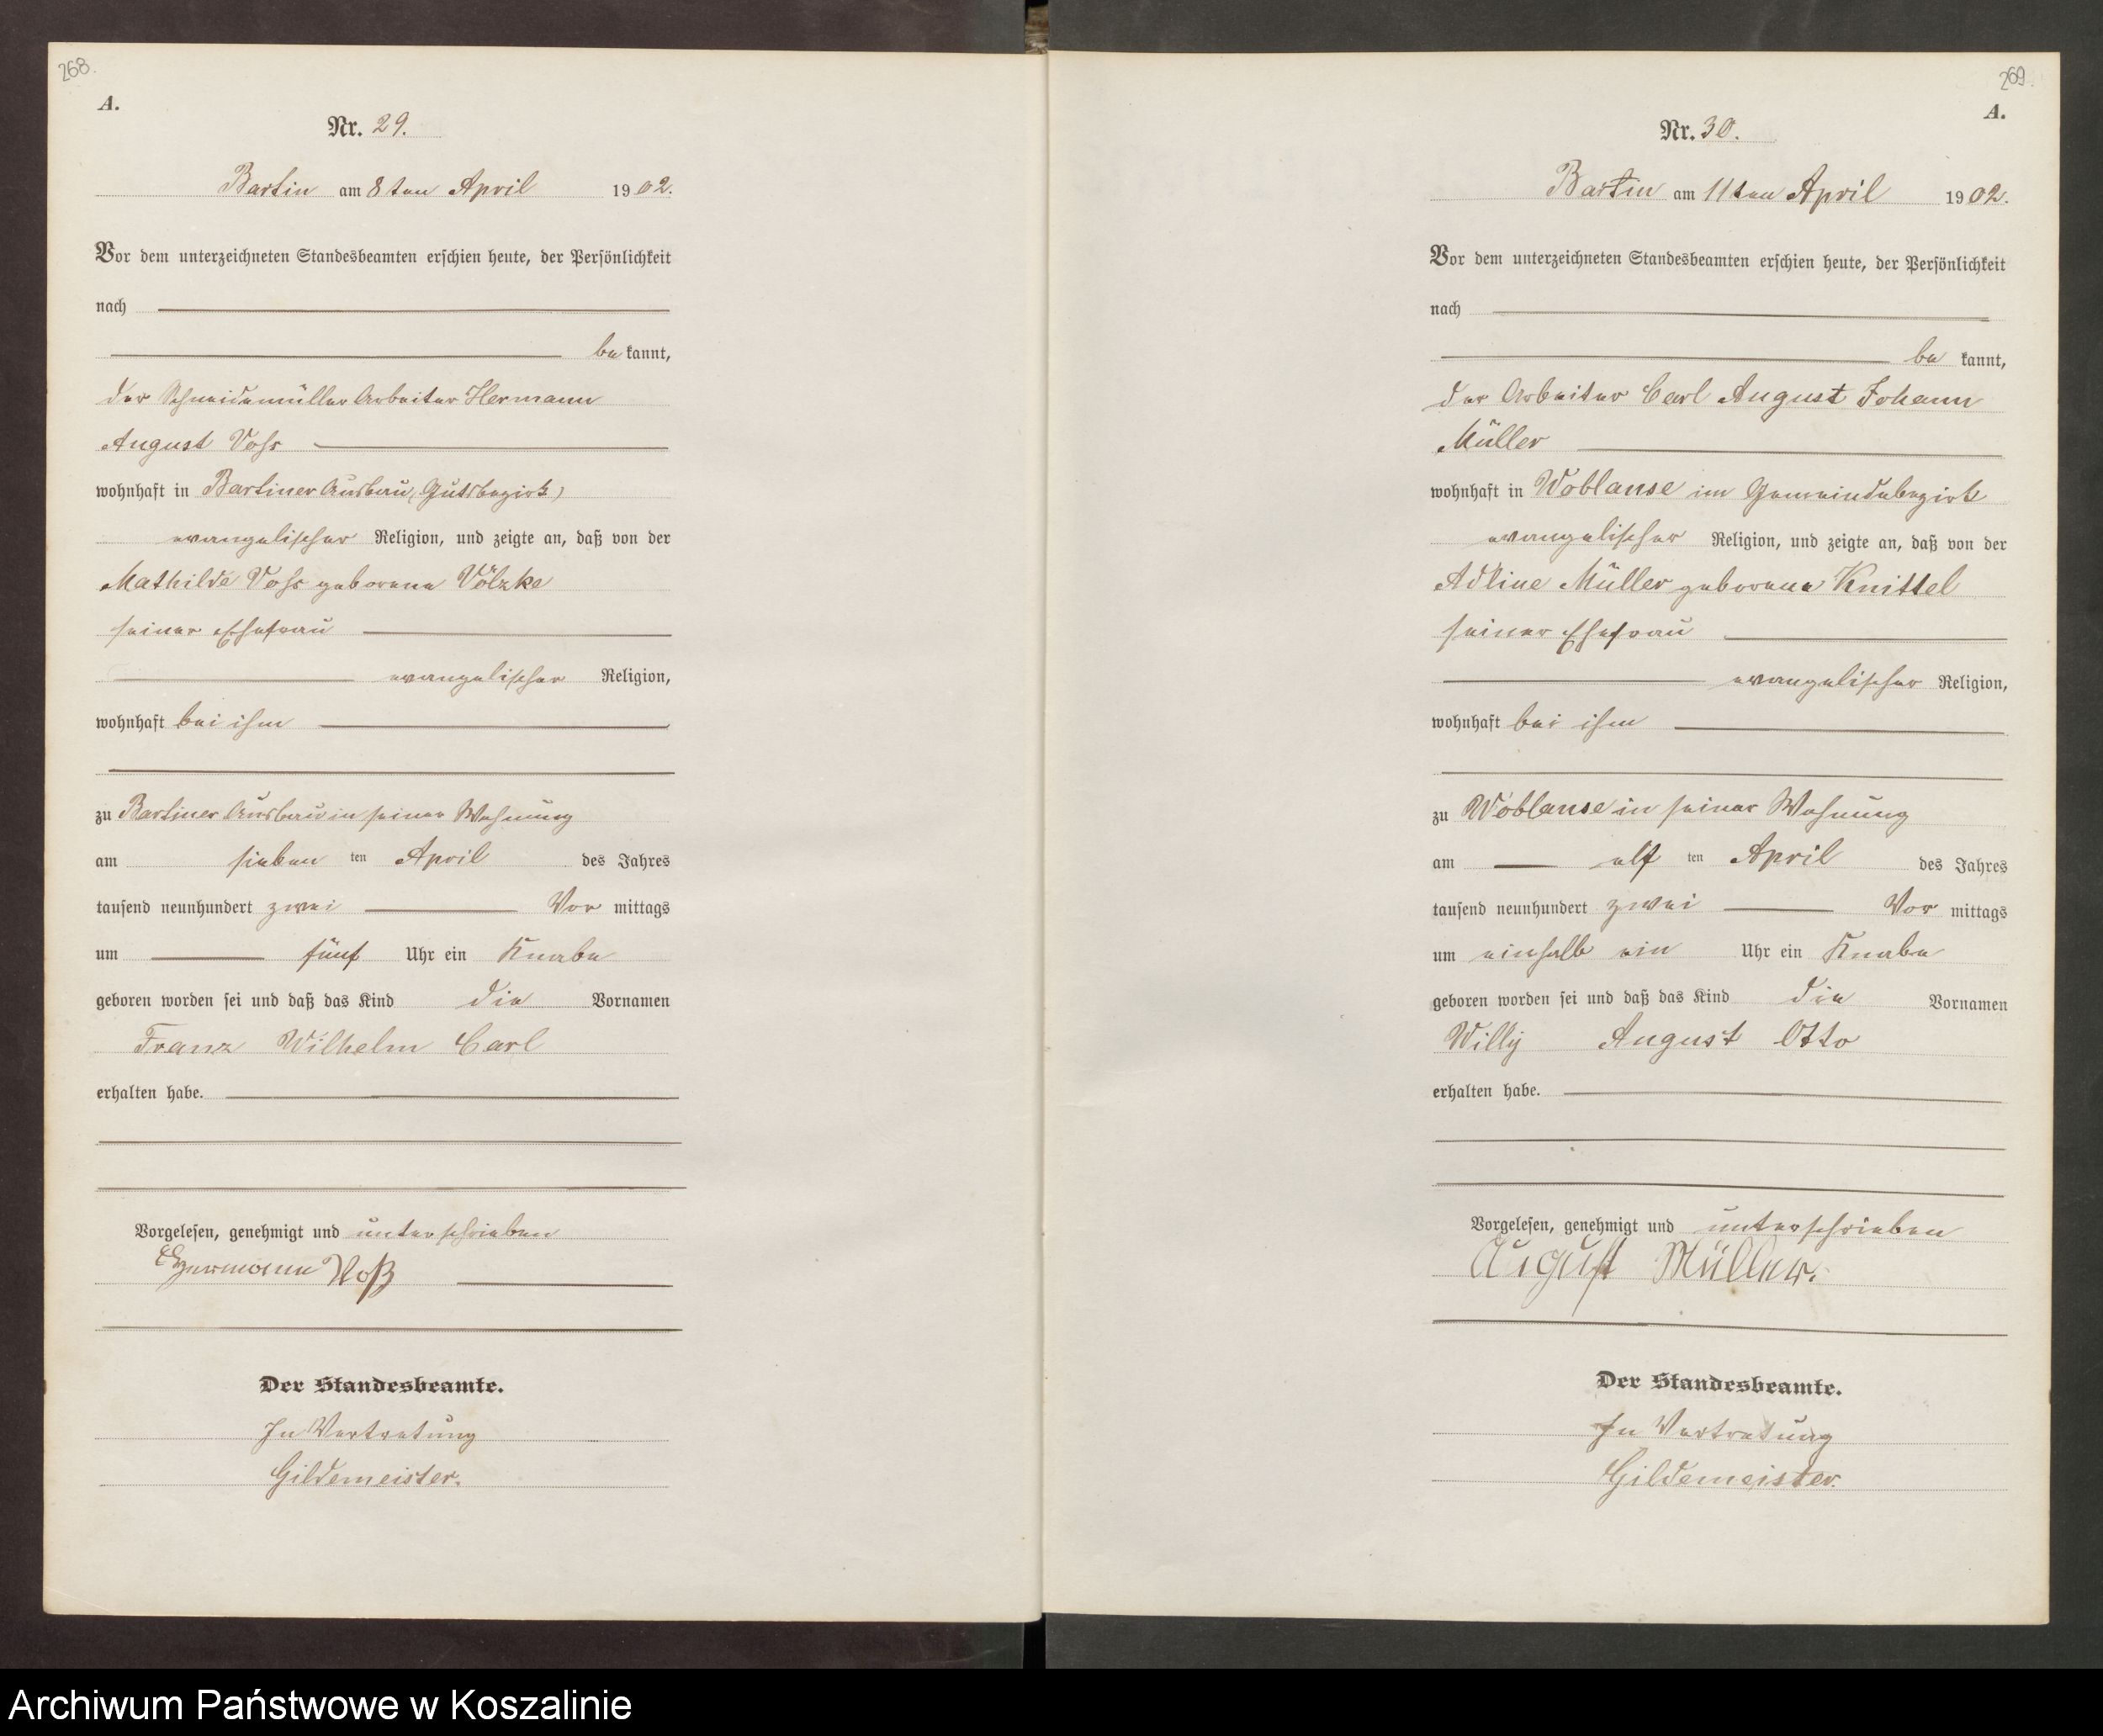 268.
A.
Nr. 29.
Bartin am 8ten April 1902.
Vor dem unterzeichneten Standesbeamten erschien heute, der Persönlichkeit
nach
bekannt,
der Schneidemüller Arbeiter Hermann
August Voss
wohnhaft in Bartiner Ausbau, (Gutsbezirk)
evangelischer Religion, und zeigte an, daß von der
Mathilde Voss geborene Völzke
seiner Ehefrau
evangelischer Religion,
wohnhaft bei ihm
zu Bartiner Ausbau in seiner Wohnung
am sieben ten April des Jahres
tausend neunhundert zwei Vor mittags
um fünf Uhr ein Knabe
geboren worden sei und daß das Kind die Vornamen
Franz Wilhelm Carl
erhalten habe.
Vorgelesen, genehmigt und unterschrieben
Hermann Voß
Der Standesbeamte.
In Vertretung
Gildemeister.
269.
A.
Nr. 30.
Bartin am 11ten April 1902.
Vor dem unterzeichneten Standesbeamten erschien heute, der Persönlichkeit
nach
be kannt,
der Arbeiter Carl August Johann
Müller
wohnhaft in Woblanse im Gemeindebezirk
evangelischer Religion, und zeigte an, daß von der
Adline Müller geborene Knittel
seiner Ehefrau
evangelischer Religion,
wohnhaft bei ihm
zu Woblanse in seiner Wohnung
am elf ten April des Jahres
tausend neunhundert zwei Vor mittags
um einhalb ein Uhr ein Knabe
geboren worden sei und daß das Kind die Vornamen
Willy August Otto
erhalten habe.
Vorgelesen, genehmigt und unterschrieben
August Müller.
Der Standesbeamte.
In Vertretung
Gildemeister.
Archiwum Państwowe w Koszalinie